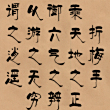 折梅手
乘天地之正
御六气之辩
以游之无穷
谓之逍遥